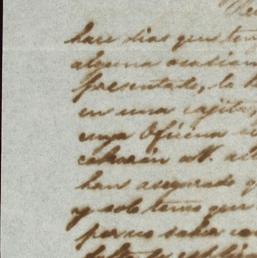 hace dias que ten
alguna ocasion
presentado, la h
en una cajita,
cuya Oficina
han asegurado q
y solo temo que
por no saber con